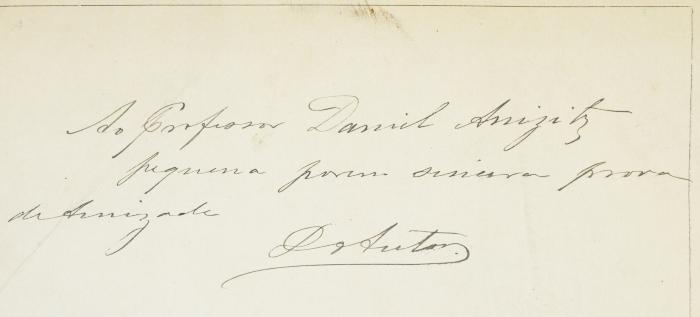 Ao Professor Daniel Anizitz
pequena porem sincera prova
de Amizade
Do Autor.